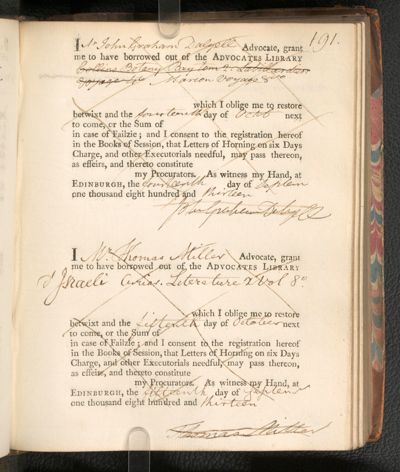 191.
I Mr John Graham Dalyell Advocate, grant
me to have borrowed out of the ADVOCATES LIBRARY
Collins Botany Bay
Voyage Marion Voyage 8vo
which I oblige me to restore
betwixt and the fourteenth day of Octo next
to come, or the Sum of
in case of Failzie; and I consent to the registration hereof
in the Books of Session, that Letters of Horning on six Days
Charge, and other Executorials needful, may pass thereon,
as effeirs, and thereto constitute
my Procurators. As witness my Hand, at
EDINBURGH, the fourteenth day of Septem
one thousand eight hundred and thirteen
John Graham Dalyell
I Mr. Thomas Miller Advocate, grant
me to have borrowed out of the ADVOCATES LIBRARY
d'Israeli Curios. Literature 2 Vol 8o
which I oblige me to restore
betwixt and the fifteenth day of October next
to come, or the Sum of
in case of Failzie; and I consent to the registration hereof
in the Books of Session, that Letters of Horning on six Days
Charge, and other Executorials needful, may pass thereon,
as effeirs, and thereto constitute
my Procurators. As witness my Hand, at
EDINBURGH, the fifteenth day of Septem
one thousand eight hundred and thirteen
Thomas Miller